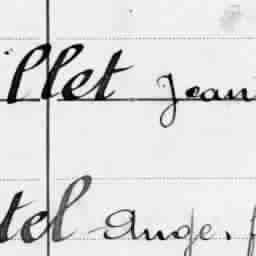 illet Jean
tel Ange.